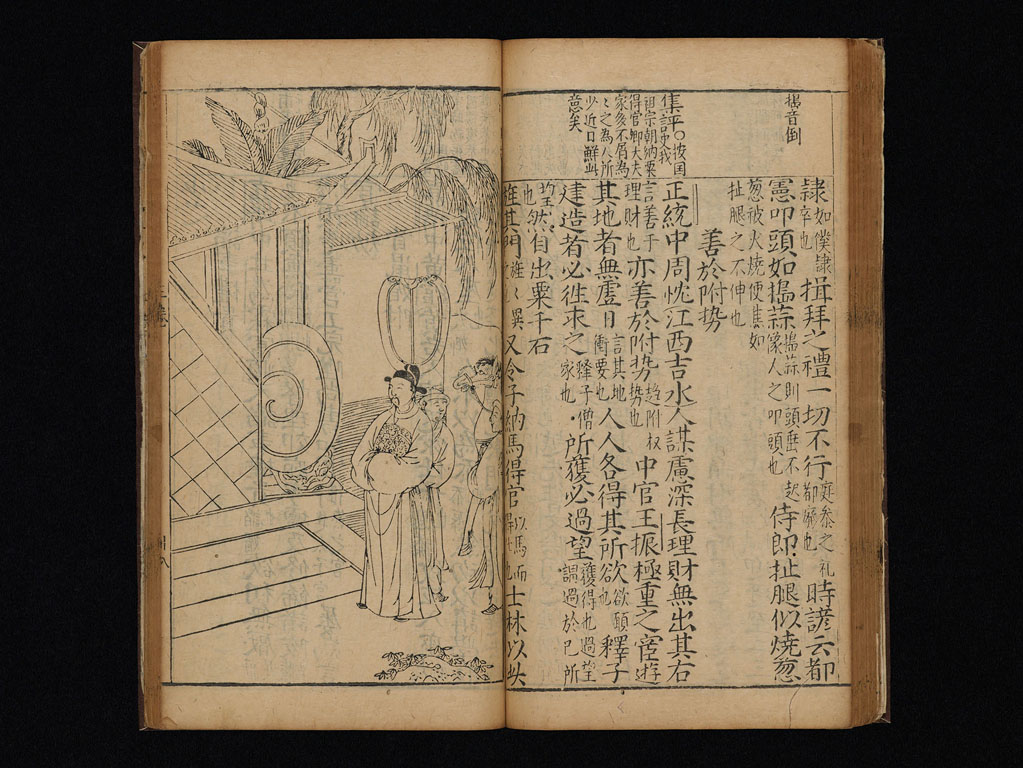 搗音倒
隷如僕隷卒也揖拜之禮一切不行庭叅之礼都癈也時諺云都
憲叩頭如搗蒜搗蒜則頭垂不起像人之叩頭也侍郎扯腿似燒葱
葱被火燒便焦如扯腿之不伸也
善於附势
集評○按国
朝納粟
得官卿大夫
家多不屑為
之為人所
少近日鮮此
意矣
正統中周忱江西吉水人謀慮深長理財無出其右
言善于理財也亦善於附势趋附权势也中官王振極重之宦遊
其地者無虚日言其地衝要也人人各得其所欲欲願也釋子
建造者必徃求之釋子僧家也所獲必過望獲得也過望謂過於已所
望也然自出粟千石
旌其門又令子納馬得官士林以此